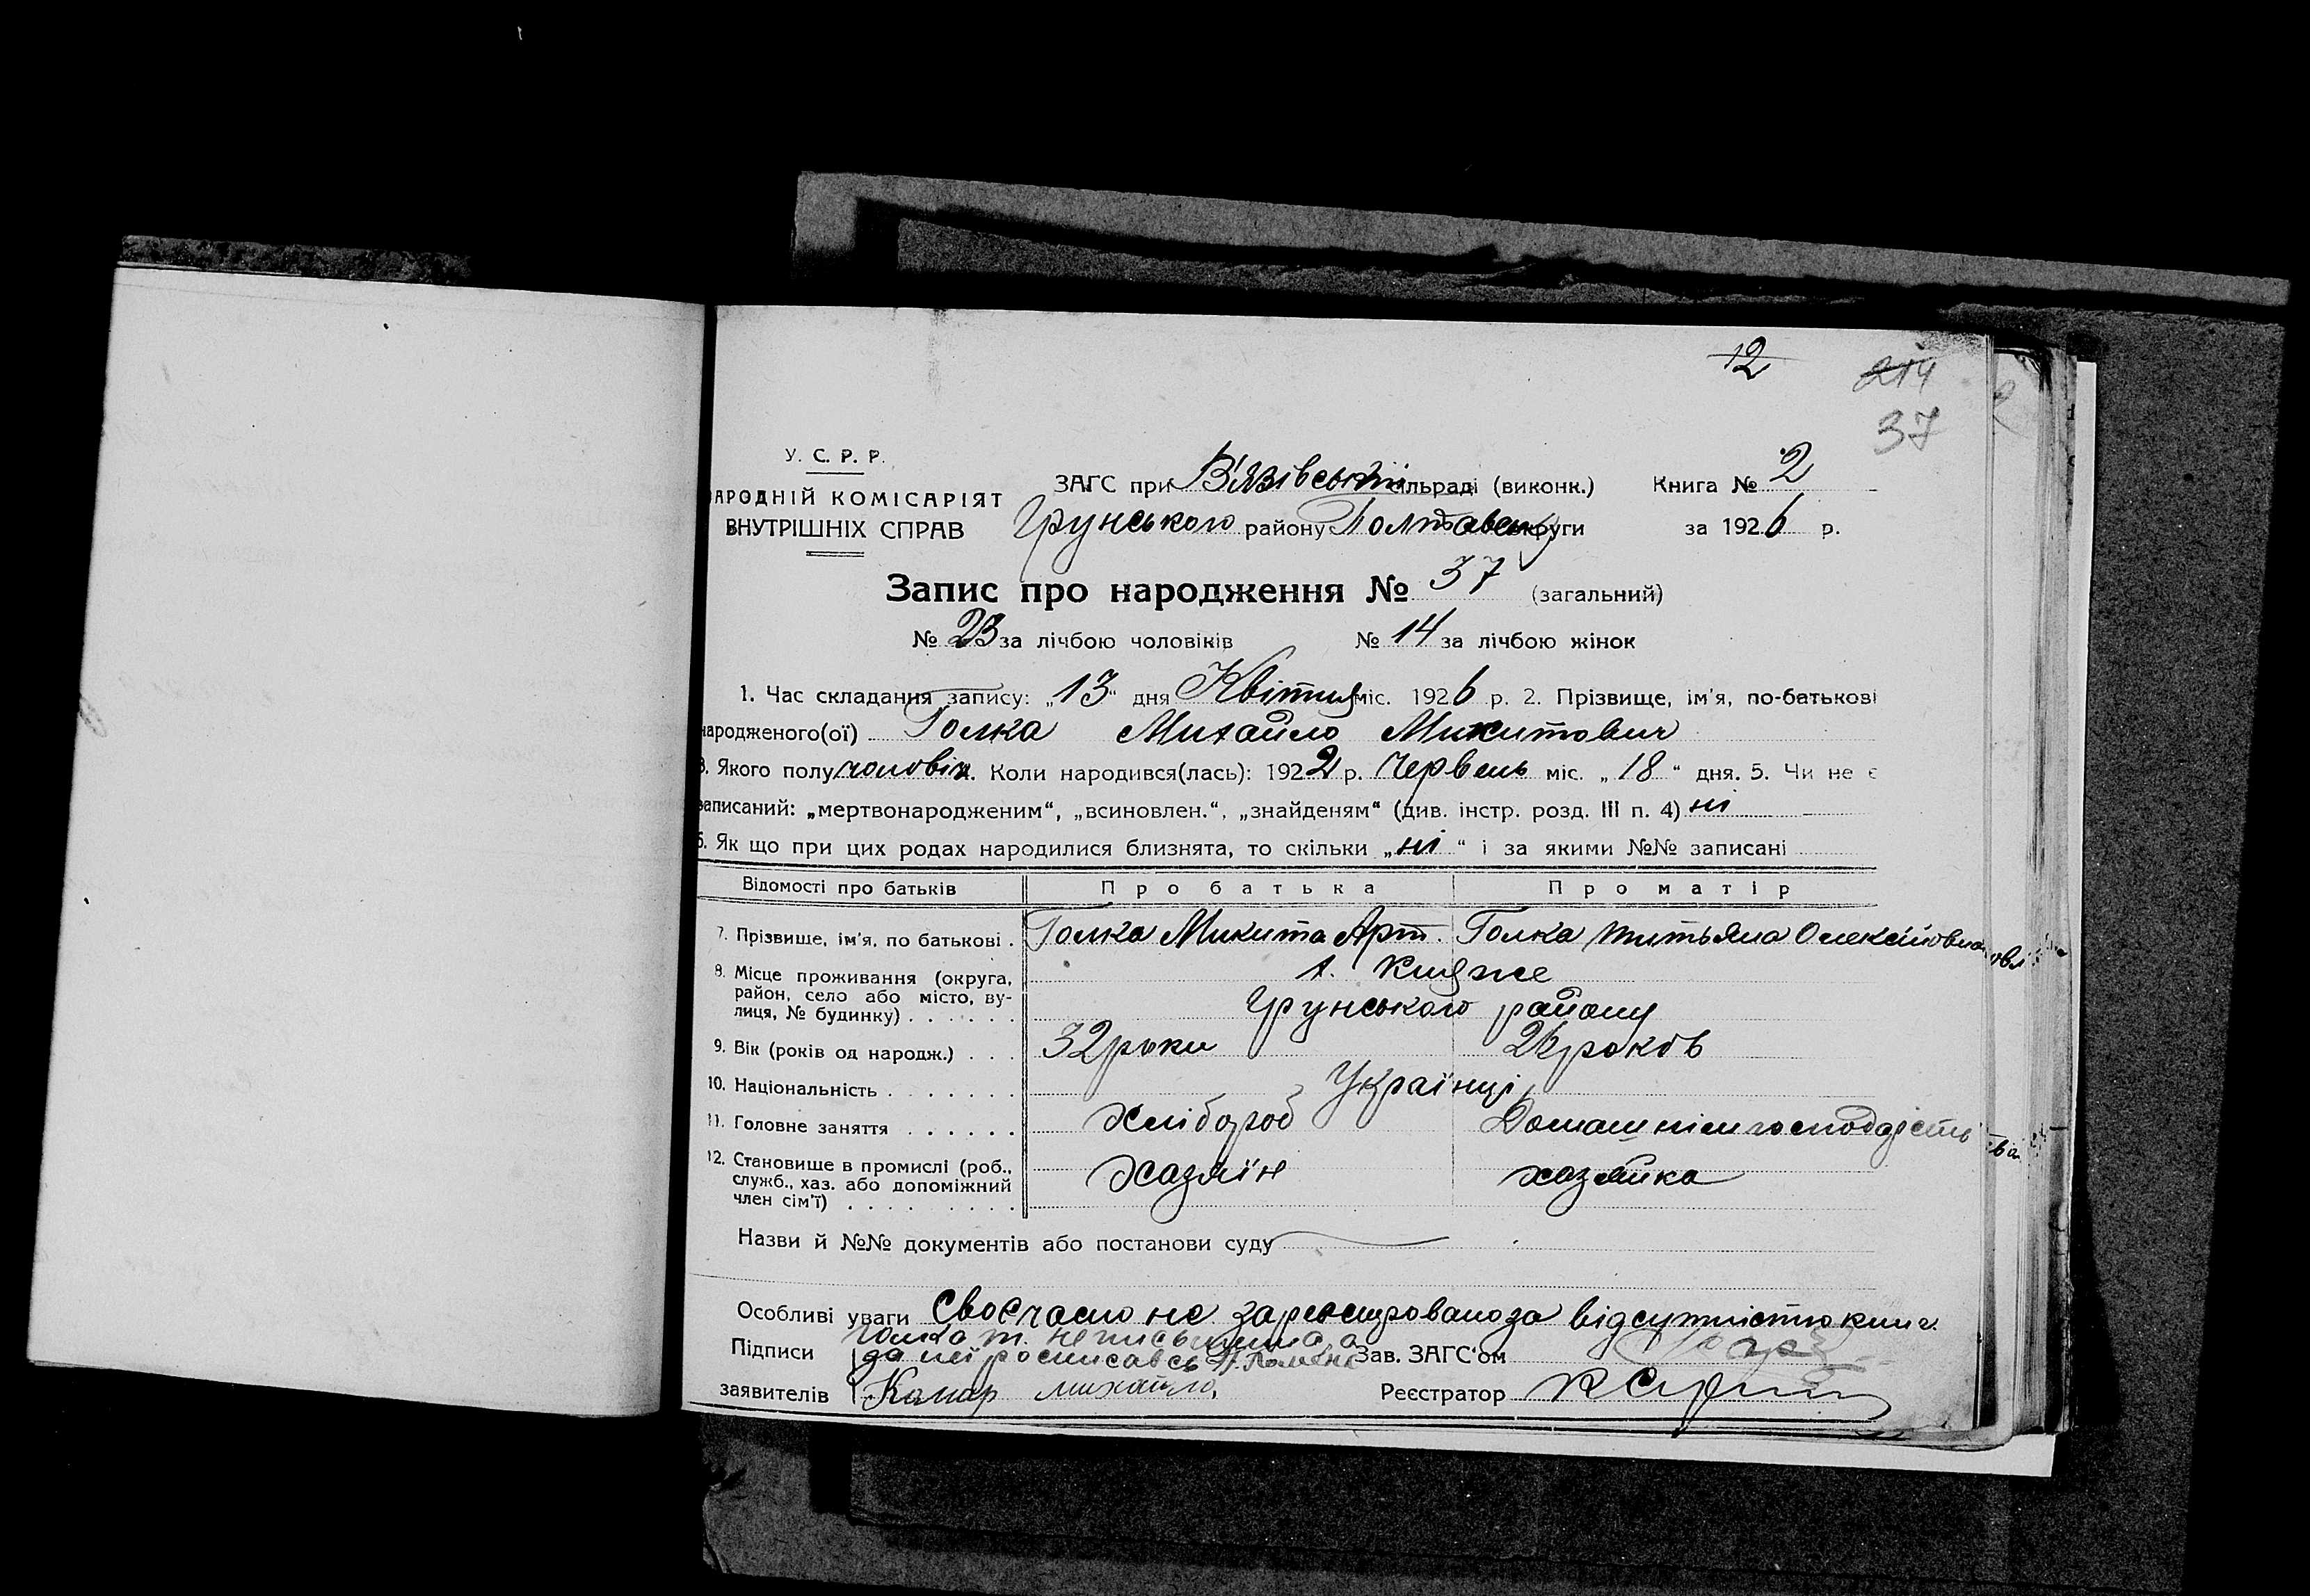 12
214
37
У. С. Р. Р.
НАРОДНІЙ КОМІСАРІЯТ
ВНУТРІШНІХ СПРАВ
ЗАГС при В'язівській сільраді (виконк.) Книга № 2
Грунського району Полтавськ округи за 1926 р.
Запис про народження № 37 (загальний)
№ 23 за лічбою чоловіків № 14 за лічбою жінок
1. Час складання запису: „13“ дня Квітня міс. 1926 р. 2. Прізвище, ім'я, по-батькові
народженого(ої) Голка Михайло Микитович
3. Якого полу чоловіч. Коли народився(лась): 1922 р. Червень міс. „18“ дня. 5. Чи не є
записаний: „мертвонародженим“, „всиновлен.“, „знайденям“ (див. інстр. розд. III п. 4) ні
6. Як що при цих родах народилися близнята, то скільки „ні“ і за якими №№ записані
Відомості про батьків Про батька Про матір
7. Прізвище, ім'я, по батькові . Голка Микита Арт. Голка Титьяна Олексіїовна
8. Місце проживання (округа, район, село або місто, вулиця, № будинку) . . . . . . х. Княже
Грунського району
9. Вік (років од народж.) . . . 32 роки 26 роков
10. Національність . . . . . . . Українці
11. Головне заняття . . . . . . Хлібороб Домашнім господарств
12. Становище в промислі (роб., служб., хаз. або допоміжний член сім'ї) . . . . . . . . . Хазяїн хазяйка
Назви й №№ документів або постанови суду
Особливі уваги Своєчасно не зареєстровано за відсутністю книг.
Підписи Голка т. неписьменна, а
за неї росписавсь Зав. ЗАГС'ом
заявителів михайло, Реєстратор